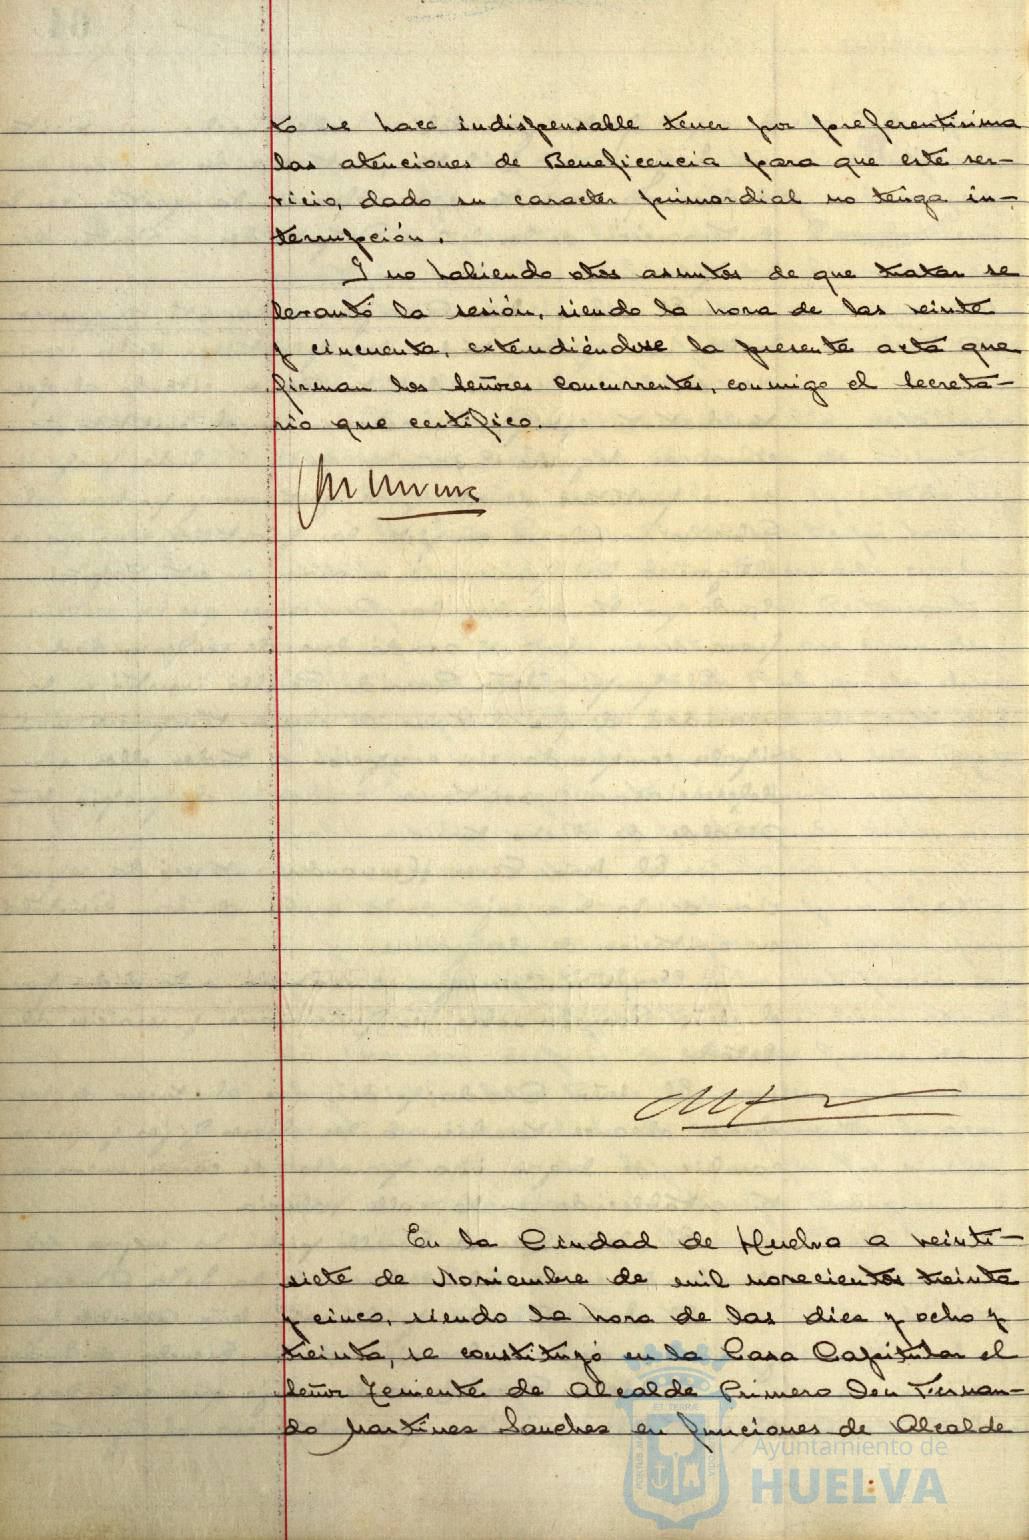 to se hace indispensable tener por preferentisima
las atenciones de Beneficencia para que este ser-
vicio, dado su caracter primordial no tenga in-
terrupción.
Y no habiendo otros asuntos de que tratar se
levantó la sesión, siendo la hora de las veinte
y cincuenta, extendiéndose la presente acta que
firman los Señores concurrentes, conmigo el Secreta-
rio que certifico.
En la Ciudad de Huelva a veinti-
siete de Noviembre de mil novecientos treinta
y cinco, siendo la hora de las diez y ocho y
treinta, se constituyó en la Casa Capitular el
Señor Teniente de Alcalde Primero Don Fernan-
do Martinez Sanchez en funciones de Alcalde
Ayuntamiento de
HUELVA